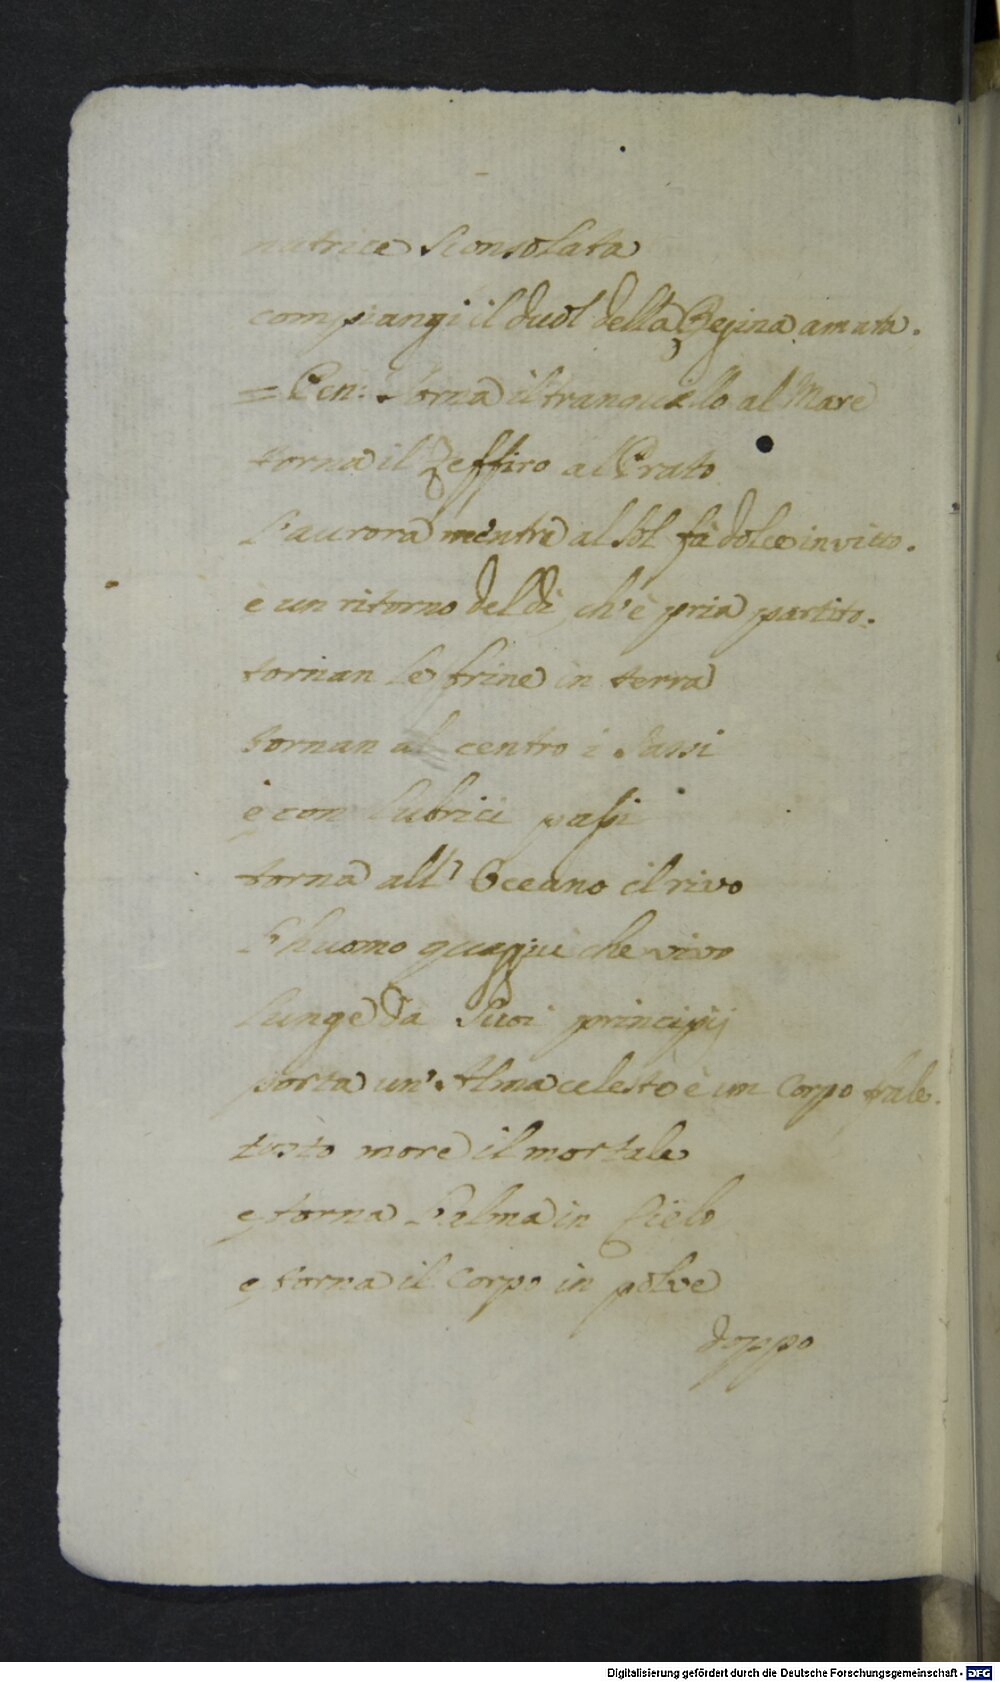 nutrice Sconsolata
compiangi il duol della Regina amata.
= Pen: Torna il tranquillo al Mare
torna il Zeffiro al Prato
L'aurora mentre al Sol fà dolce invito.
e un ritorno del dì, ch'è pria partito.
tornan le brine in terra
tornan al centro i sassi
e con lubrici passi
torna all' Oceano il rivo
L'huomo quaggiù che vivo
lunge da Suoi principij
porta un' Alma celeste è un Corpo frale.
tosto more il mortale
e torna L'alma in Cielo
e torna il Corpo in polve
doppo
Digitalisierung gefördert durch die Deutsche Forschungsgemeinschaft - DFG